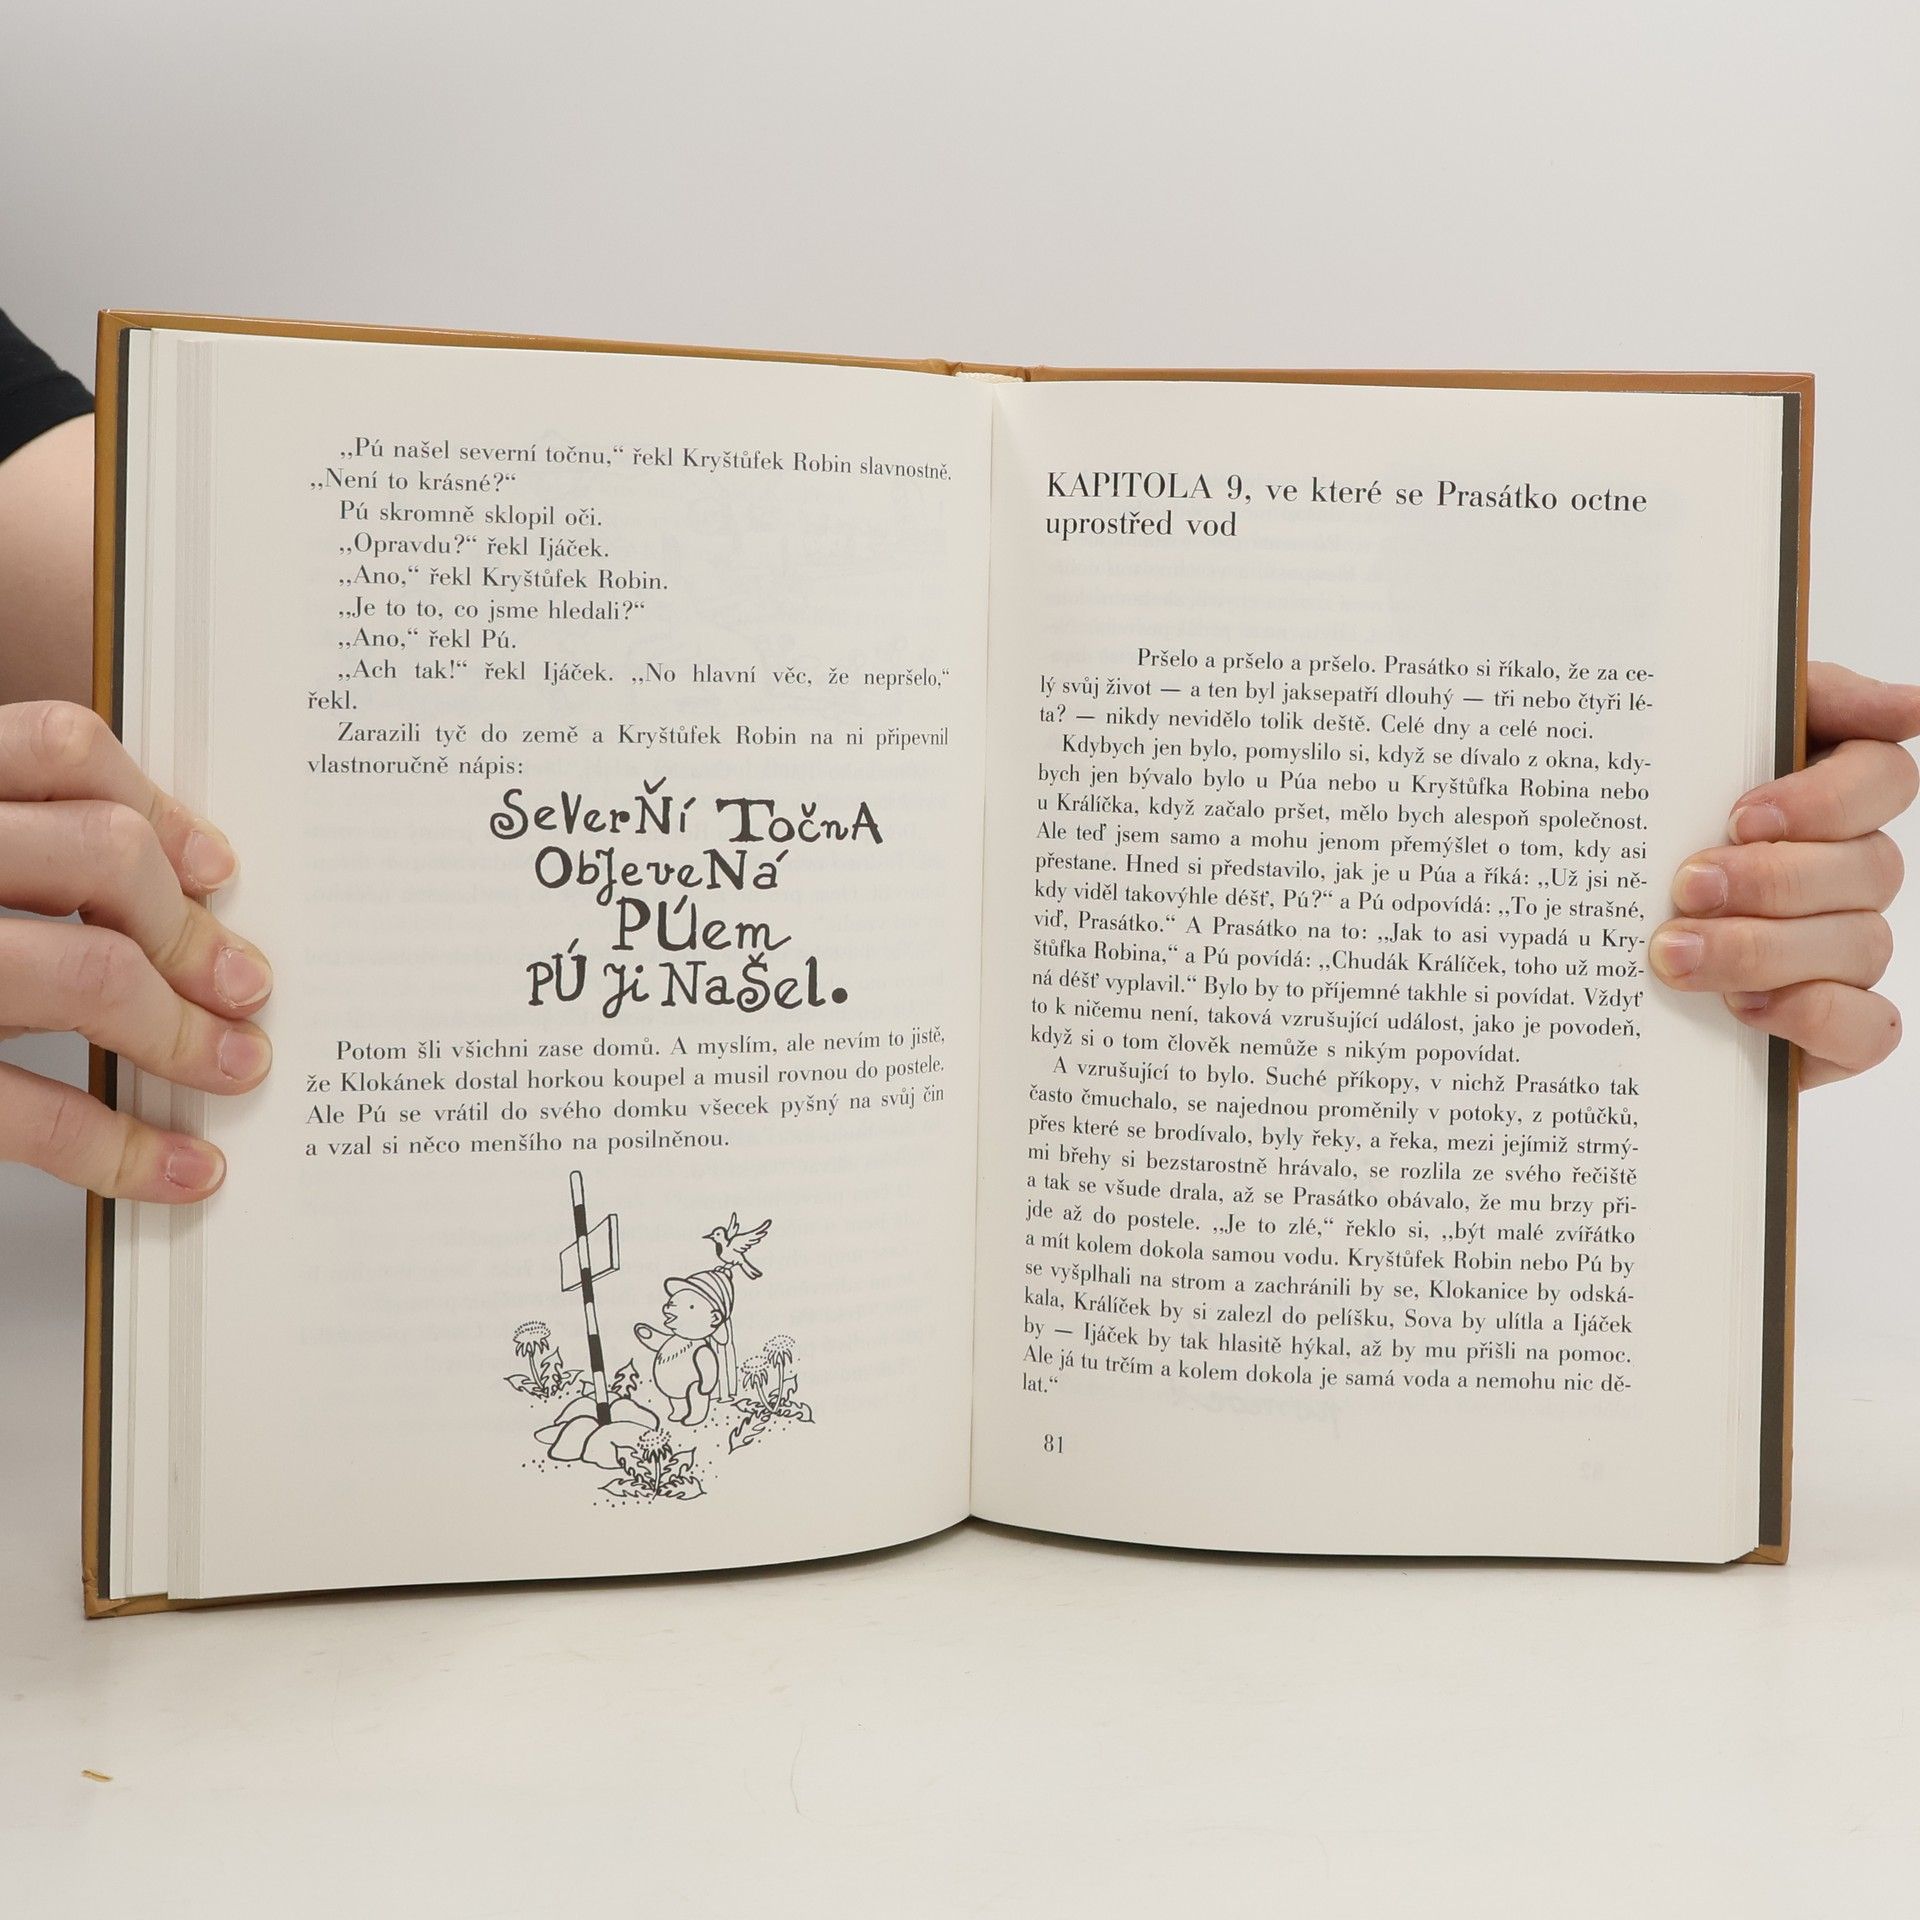 „Pú našel severní točnu,“ řekl Kryštůfek Robin slavnostně.
„Není to krásné?“
Pú skromně sklopil oči.
„Opravdu?“ řekl Ijáček.
„Ano,“ řekl Kryštůfek Robin.
„Je to to, co jsme hledali?“
„Ano,“ řekl Pú.
„Ach tak!“ řekl Ijáček. „No hlavní věc, že nepršelo,“
řekl.
Zarazili tyč do země a Kryštůfek Robin na ni připevnil
vlastnoručně nápis:
SeVerŇí TočnA
ObJeveNá
PÚem
PÚ Ji NaŠel.
Potom šli všichni zase domů. A myslím, ale nevím to jistě,
že Klokánek dostal horkou koupel a musil rovnou do postele.
Ale Pú se vrátil do svého domku všecek pyšný na svůj čin
a vzal si něco menšího na posilněnou.
KAPITOLA 9, ve které se Prasátko octne
uprostřed vod
Pršelo a pršelo a pršelo. Prasátko si říkalo, že za ce-
lý svůj život — a ten byl jaksepatří dlouhý — tři nebo čtyři lé-
ta? — nikdy nevidělo tolik deště. Celé dny a celé noci.
Kdybych jen bylo, pomyslilo si, když se dívalo z okna, kdy-
bych jen bývalo bylo u Púa nebo u Kryštůfka Robina nebo
u Králíčka, když začalo pršet, mělo bych alespoň společnost.
Ale teď jsem samo a mohu jenom přemýšlet o tom, kdy asi
přestane. Hned si představilo, jak je u Púa a říká: „Už jsi ně-
kdy viděl takovýhle déšť, Pú?“ a Pú odpovídá: „To je strašné,
viď, Prasátko.“ A Prasátko na to: „Jak to asi vypadá u Kry-
štůfka Robina,“ a Pú povídá: „Chudák Králíček, toho už mož-
ná déšť vyplavil.“ Bylo by to příjemné takhle si povídat. Vždyť
to k ničemu není, taková vzrušující událost, jako je povodeň,
když si o tom člověk nemůže s nikým popovídat.
A vzrušující to bylo. Suché příkopy, v nichž Prasátko tak
často čmuchalo, se najednou proměnily v potoky, z potůčků,
přes které se brodívalo, byly řeky, a řeka, mezi jejímiž strmý-
mi břehy si bezstarostně hrávalo, se rozlila ze svého řečiště
a tak se všude drala, až se Prasátko obávalo, že mu brzy při-
jde až do postele. „Je to zlé,“ řeklo si, „být malé zvířátko
a mít kolem dokola samou vodu. Kryštůfek Robin nebo Pú by
se vyšplhali na strom a zachránili by se, Klokanice by odská-
kala, Králíček by si zalezl do pelíšku, Sova by ulítla a Ijáček
by — Ijáček by tak hlasitě hýkal, až by mu přišli na pomoc.
Ale já tu trčím a kolem dokola je samá voda a nemohu nic dě-
lat.“
81